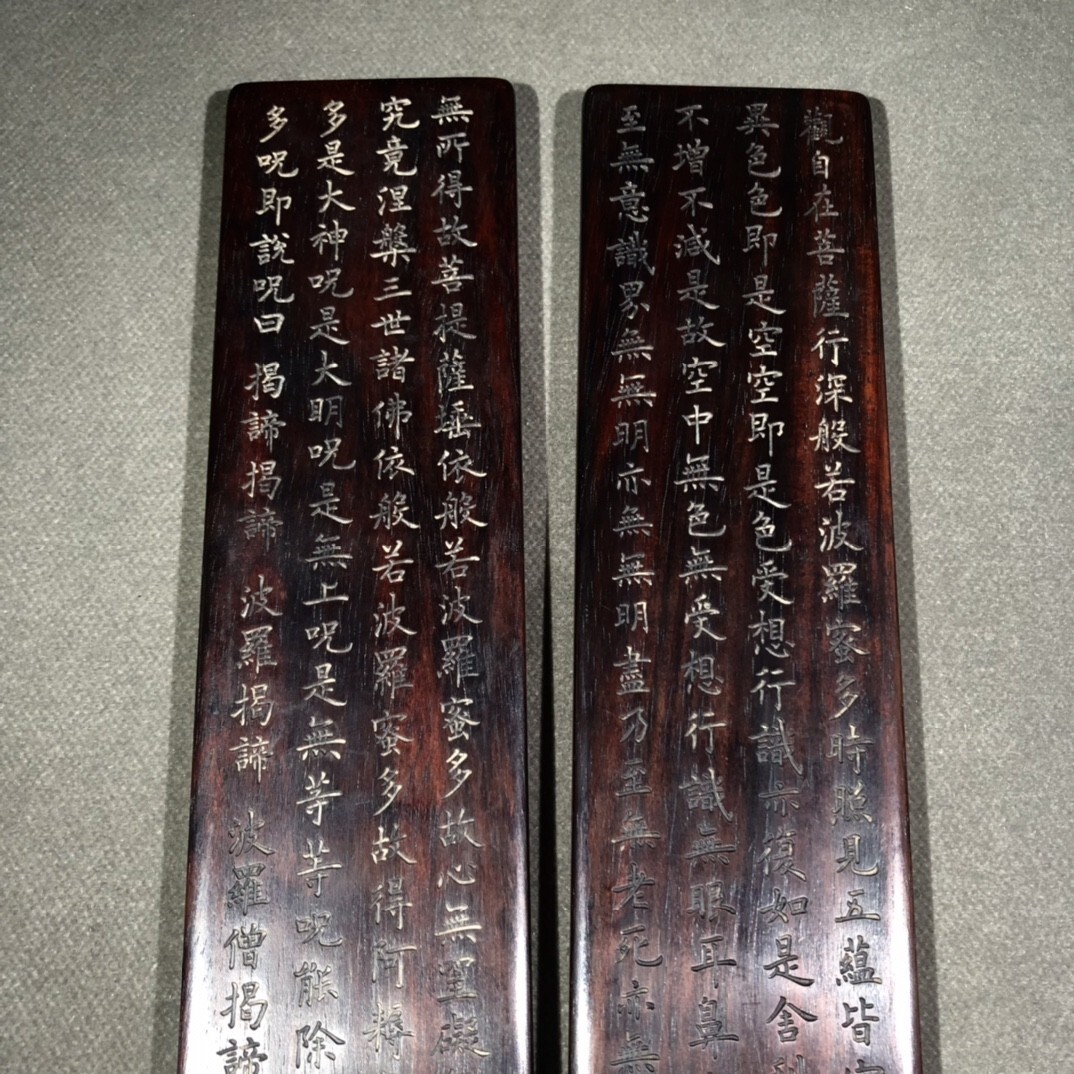 觀自在菩薩行深般若波羅蜜多時照見五蘊皆
異色色即是空空即是色受想行識亦復如是舍利
不增不減是故空中無色無受想行識無眼耳鼻
至無意識界無無明亦無無明盡乃至無老死亦無
無所得故菩提薩埵依般若波羅蜜多故心無罣礙
究竟涅槃三世諸佛依般若波羅蜜多故得阿耨
多是大神呪是大明呪是無上呪是無等等呪能除
多呪即說呪曰 揭諦揭諦 波羅揭諦 波羅僧揭諦